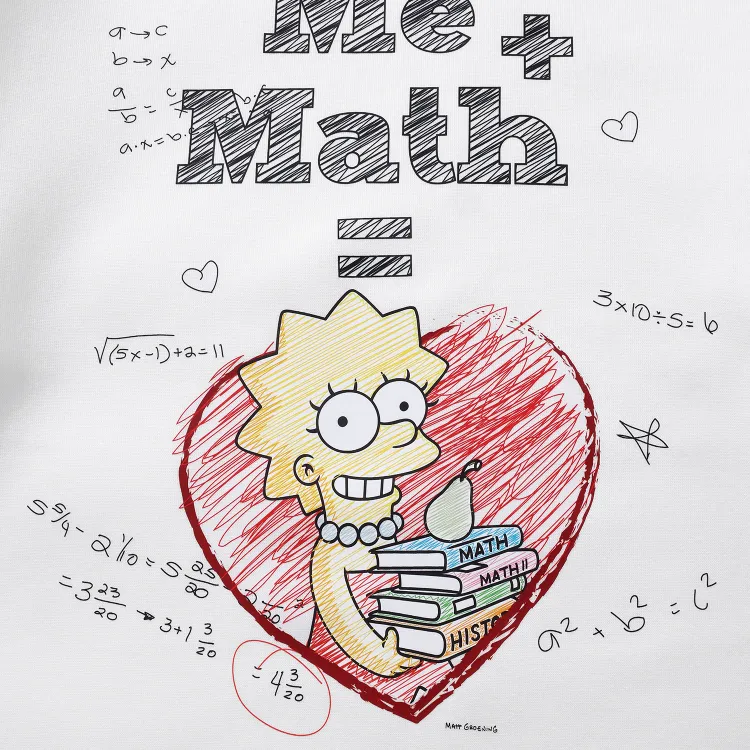 Me +
Math
=
a → c
b → x
a/b = c/x
a·x = b·
√(5x-1) + 2 = 11
3×10÷5=6
5 5/4 - 2 1/10 = 5 25/20
= 3 23/20 → 3+1 3/20
= 4 3/20
MATH
MATH II
HISTO
a² + b² = c²
MATT GROENING